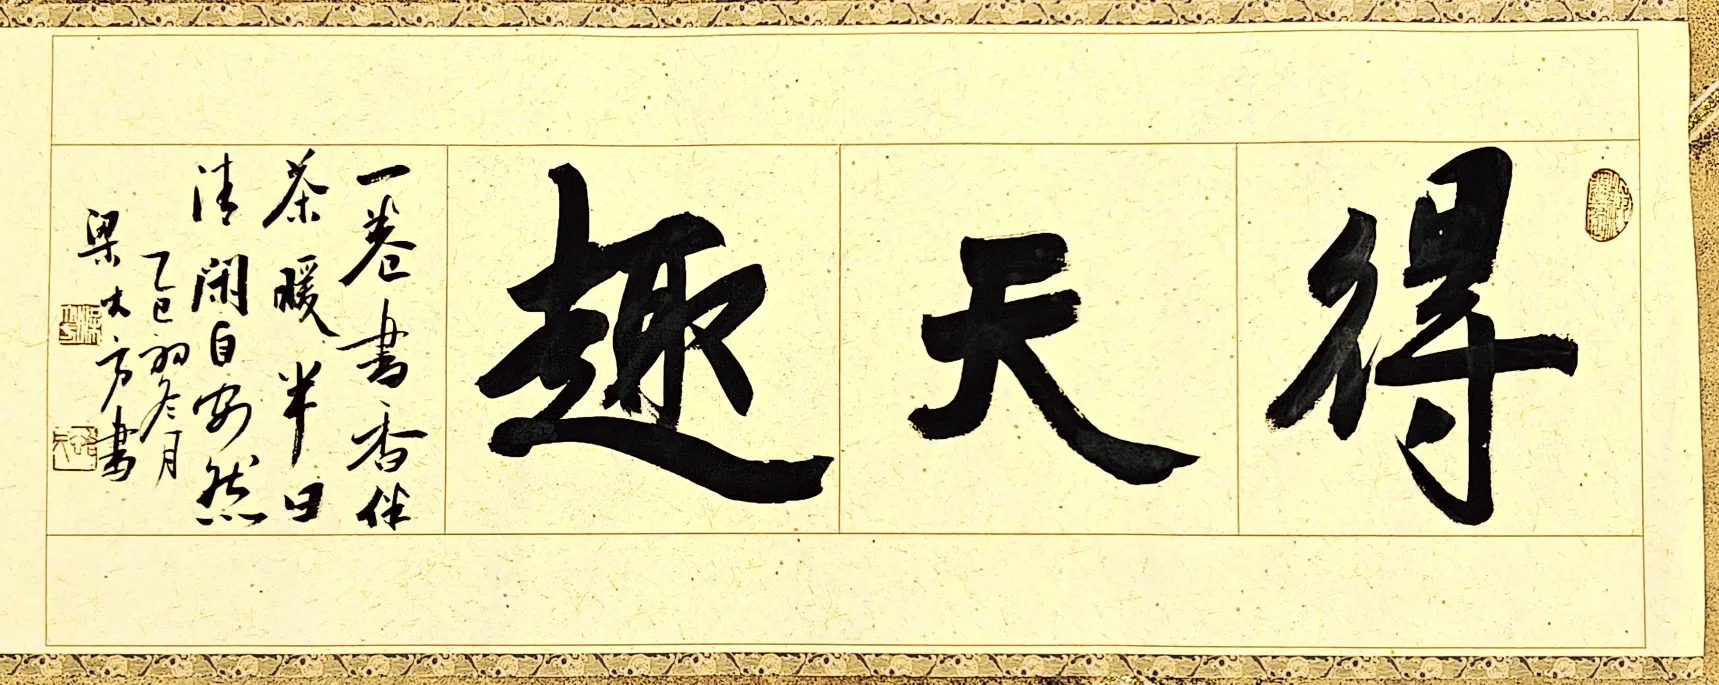 得天趣
一卷书香伴
茶暖半日
清闲自安然
乙巳初冬月
梁大方书